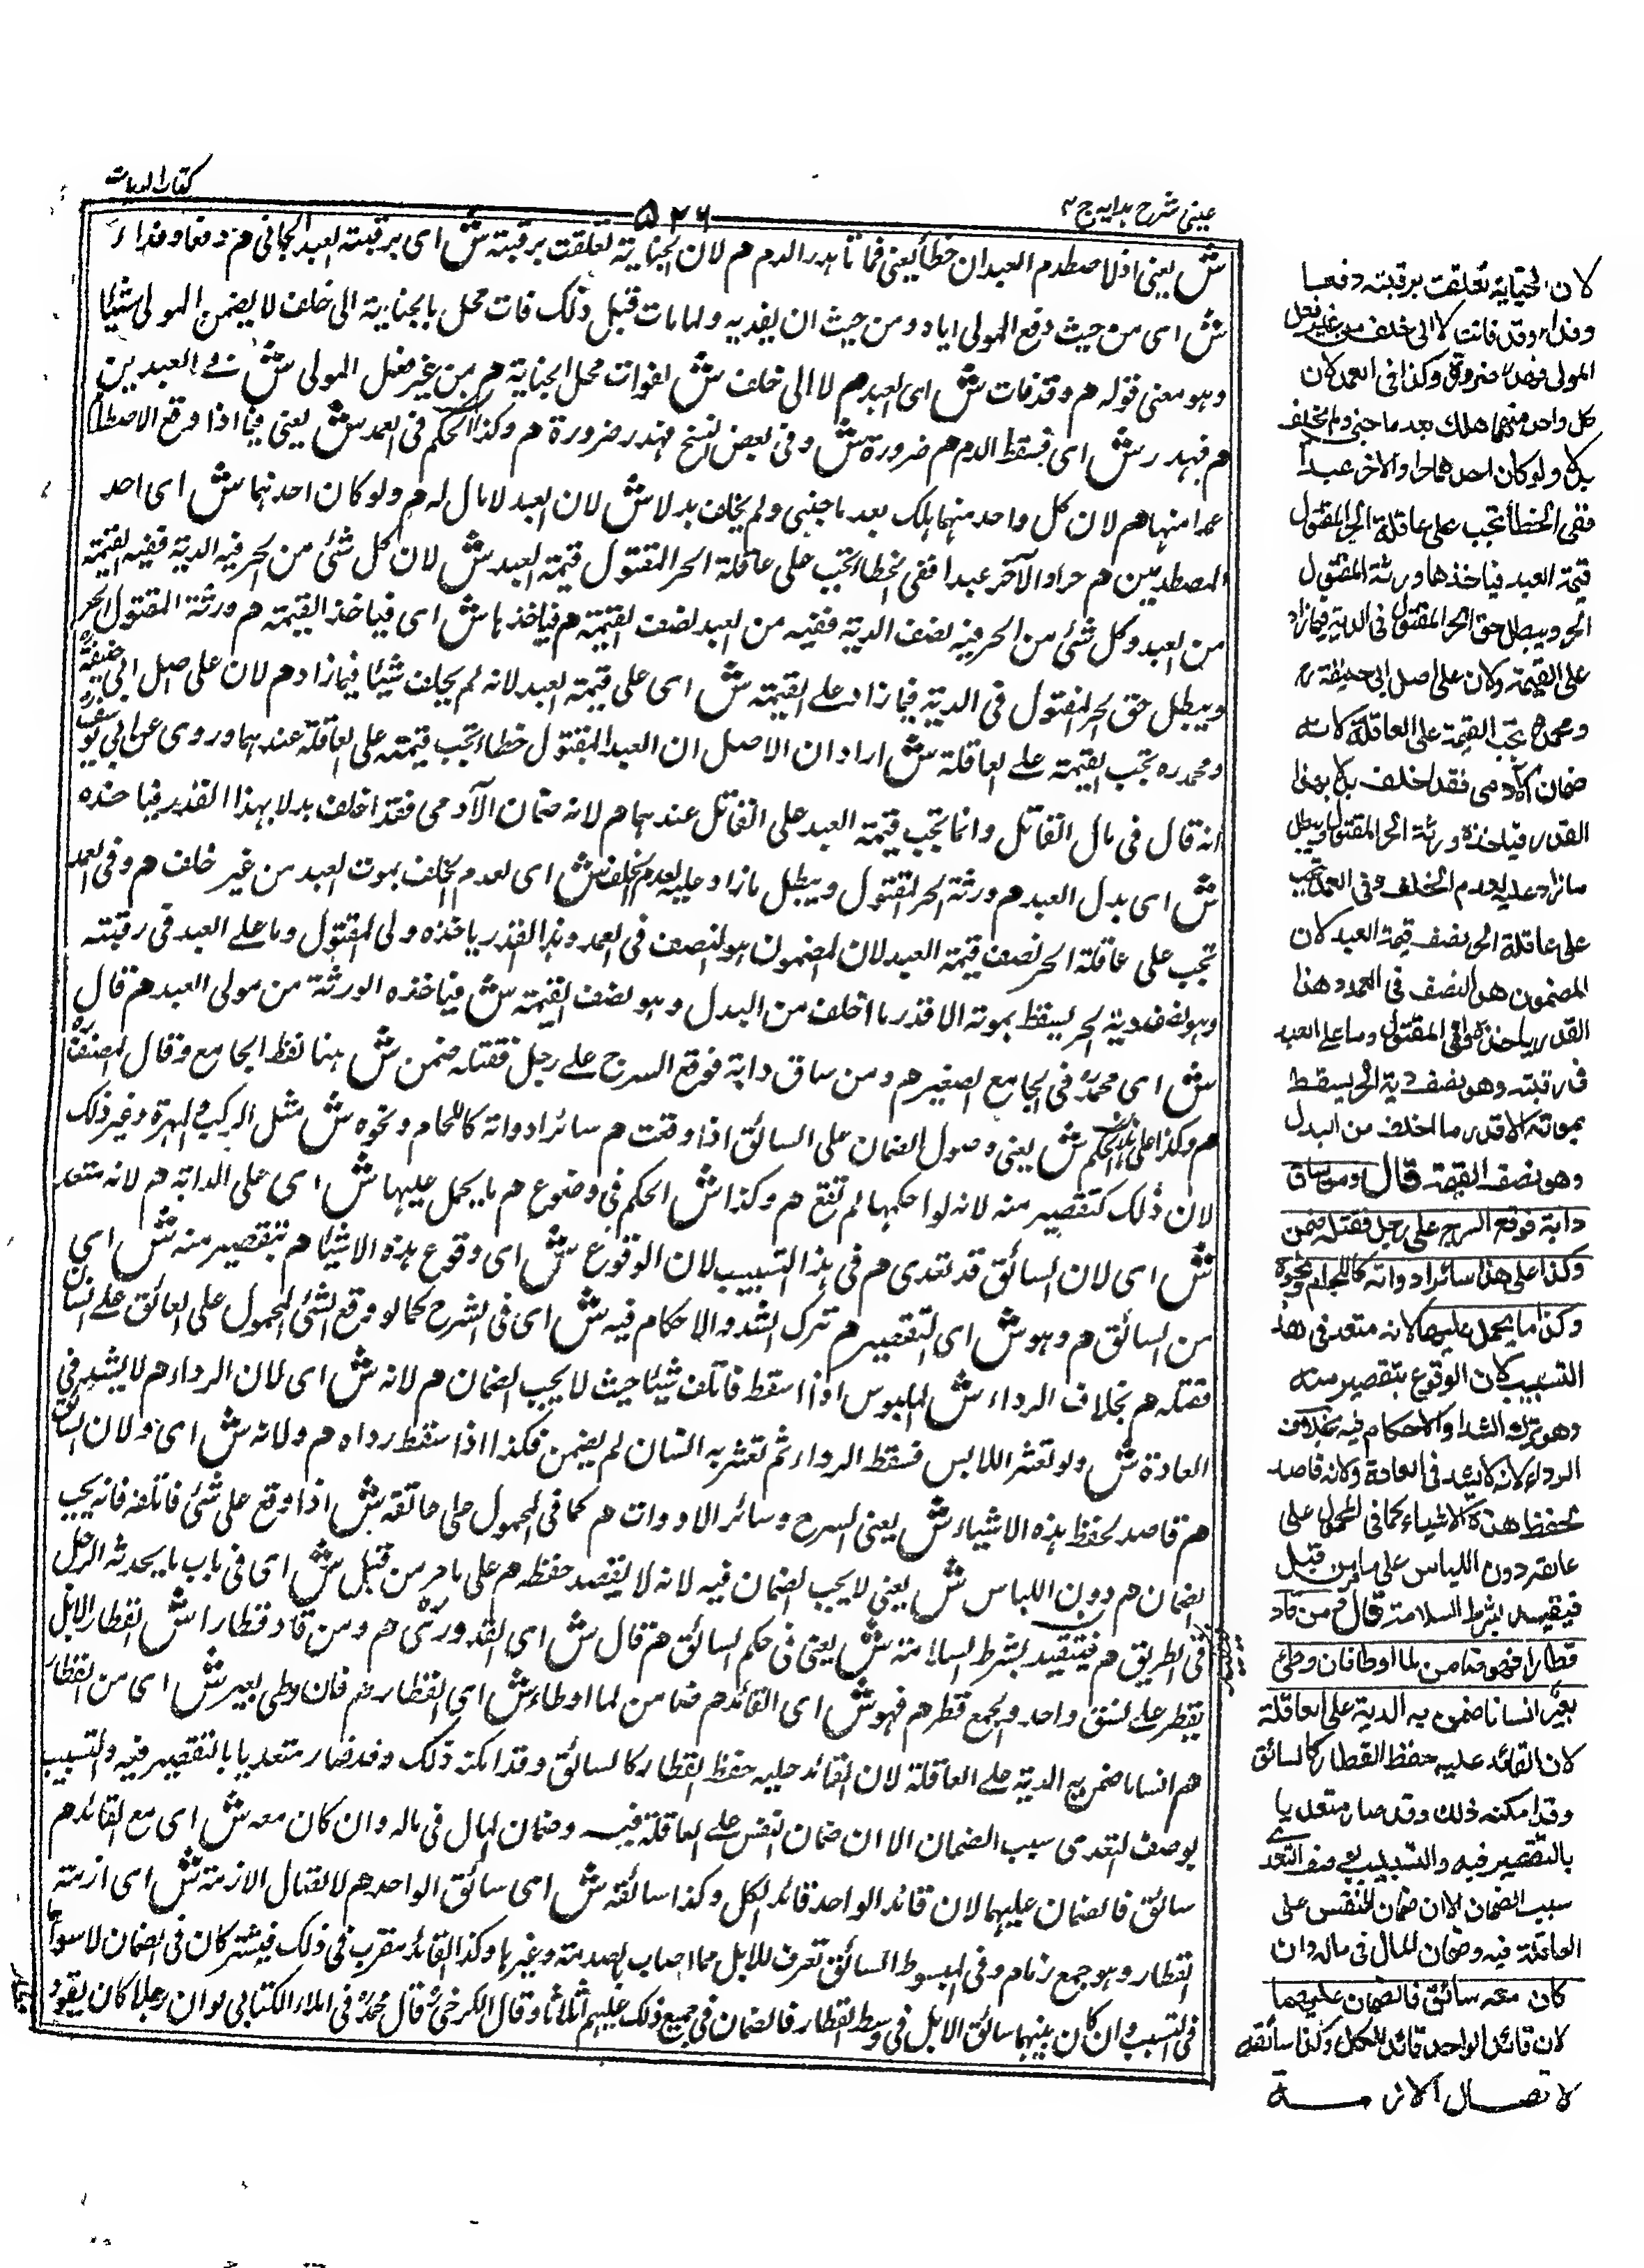 عینی شرح ہدایہ ج ۴
۵۲۶
کتاب الدیات
ش یعنی اذا اصطدم العبدان خطأ یعنی فماتا ہدر الدم ھم لان الجنایۃ تعلقت برقبتہ ش ای برقبتہ العبد الجانی ھم دفعا و فداء
ش ای من حیث دفع المولی ایاہ ومن حیث ان یفدیہ ولما مات قبل ذلک فات محل الجنایۃ الی خلف لا یضمن المولی شیئا
وہو معنی قولہ ھم وقد فات ش ای العبد ھم لا الی خلف ش لفوات محل الجنایۃ ھم من غیر فعل المولی ش فے العبدین
ھم فہدر ش ای فسقط الدم ھم ضرورۃ ش وفی بعض النسخ فہدر ضرورۃ ھم وکذا الحکم فی العمد ش یعنی فیما اذا وقع الاصطدام
عمدا منہما ھم لان کل واحد منہما ہلک بعد ما جنی ولم یخلف بدلا ش لان العبد لا مال لہ ھم ولو کان احدہما ش ای احد
المصطدمین ھم حرا والآخر عبدا ففی الخطا تجب علی عاقلۃ الحر المقتول قیمۃ العبد ش لان کل شئ من الحر فیہ الدیۃ ففیہ القیمۃ
من العبد وکل شئ من الحر فیہ نصف الدیۃ ففیہ من العبد نصف القیمۃ ھم فیاخذہا ش ای فیاخذ القیمۃ ھم ورثۃ المقتول الحر
ویبطل حق الحر المقتول فی الدیۃ فیما زاد علے القیمۃ ش ای علی قیمۃ العبد لانہ لم یخلف شیئا فیما زاد ھم لان علی اصل ابی حنیفۃ
ومحمد رہ تجب القیمۃ علے العاقلۃ ش اراد ان الاصل ان العبد المقتول خطا تجب قیمتہ علی العاقلۃ عندہما وروی عن ابی یوسف
انہ قال فی مال القاتل وانما تجب قیمۃ العبد علی القاتل عندہما ھم لانہ ضمان الآدمی فقد اخلف بدلا بہذا القدر فیاخذہ
ش ای بدل العبد ھم ورثۃ الحر المقتول ویبطل ما زاد علیہ لعدم الخلف ش ای لعدم الخلف بموت العبد من غیر خلف ھم وفی العمد
تجب علی عاقلۃ الحر نصف قیمۃ العبد لان المضمون ہو النصف فی العمد وہذا القدر یاخذہ ولی المقتول وما علے العبد فی رقبتہ
وہو نصف دیۃ الحر یسقط بموتہ الا قدر ما اخلف من البدل وہو نصف القیمۃ ش فیاخذہ الورثۃ من مولی العبد ھم قال
ش ای محمدؒ فی الجامع الصغیر ھم ومن ساق دابۃ فوقع السرج علے رجل فقتلہ ضمن ش ہنا لفظ الجامع وقال المصنف رہ
ھم وکذا علی ہذا الحکم ش یعنی وصول الضمان علی السائق اذا وقعت ھم سائر ادواتہ کاللجام ونحوہ ش مثل الرکیب والمہرۃ وغیر ذلک
لان ذلک کتقصیر منہ لانہ لو احکمہا لم تقع ھم وکذا ش الحکم فی وضوع ھم ما یحمل علیہا ش ای علی الدابۃ ھم لانہ متعد
ش ای لان السائق قد تعدی ھم فی ہذا التسبیب لان الوقوع ش ای وقوع ہذہ الاشیاء ھم بتقصیر منہ ش ای
من السائق ھم وہو ش ای التقصیر ھم ترک الشد والاحکام فیہ ش ای فی الشرح کما لو وقع الشئ المحمول علی العائق علے انسان
فقتلہ ھم بخلاف الرداء ش الملبوس اذا سقط فاتلف شیئا حیث لا یجب الضمان ھم لانہ ش ای لان الرداء ھم لا یشد فی
العادۃ ش ولو تعثر اللابس فسقط الرداء ثم تعثر بہ انسان لم یضمن فکذا اذا سقط رداہ ھم ولانہ ش ای ولان السائق
ھم قاصد لحفظ ہذہ الاشیاء ش یعنی السرج وسائر الادوات ھم کما فی المحمول علی عاتقہ ش اذا وقع علی شئ فاتلفہ فانہ یجب
الضمان ھم دون اللباس ش یعنی لا یجب الضمان فیہ لانہ لا یقصد حفظہ ھم علی ما مر من قبل ش ای فی باب ما یحدثہ الرجل
فی الطریق ھم فیتقید بشرط السلامۃ ش یعنی فی حکم السائق ھم قال ش ای القدوری ھم ومن قاد قطارا ش القطار الابل
یقطر علے نسق واحد والجمع قطر ھم فہو ش ای القائد ھم ضامن لما اوطاء ش ای القطار ھم فان وطی بعیر ش ای من القطار
ھم انسانا ضمن بہ الدیۃ علے العاقلۃ لان القائد علیہ حفظ القطار کالسائق وقد امکنہ ذلک وقد صار متعدیا بالتقصیر فیہ والتسبیب
بوصف التعدی سبب الضمان الا ان ضمان النفس علے العاقلۃ فیہ وضمان المال فی مالہ وان کان معہ ش ای مع القائد ھم
سائق فالضمان علیہما لان قائد الواحد قائد الکل وکذا سائقہ ش ای سائق الواحد ھم لاتصال الازمۃ ش ای ازمۃ
القطار وہو جمع زمام وفی المبسوط السائق تعرف للابل مما اصاب بصدمتہ وغیرہا وکذا القائد مقرب فی ذلک فیشترکان فی الضمان لاستوائہما
فی السبب وان کان بینہما سائق الابل فی وسط القطار فالضمان فی جمیع ذلک علیہم اثلاثا وقال الکرخیؒ قال محمدؒ فی املاء الکتانی لو ان رجلا کان یقود
لان الجنایۃ تعلقت برقبتہ دفعا
وفداء وقد فاتت لا الی خلف من غیر فعل
المولی فھدر ضرورۃ وکذا فی العمد لان
کل واحد منھما ھلک بعد ما جنی ولم یخلف
بدلا ولو کان احدھما حرا والآخر عبدا
ففی الخطأ تجب علی عاقلۃ الحر المقتول
قیمۃ العبد فیاخذھا ورثۃ المقتول
الحر ویبطل حق الحر المقتول فی الدیۃ فیما زاد
علی القیمۃ لان علی اصل ابی حنیفۃ رہ
ومحمد رح تجب القیمۃ علی العاقلۃ لانہ
ضمان الآدمی فقد اخلف بدلا بھذا
القدر فیاخذہ ورثۃ الحر المقتول ویبطل
ما زاد علیہ لعدم الخلف وفی العمد تجب
علی عاقلۃ الحر نصف قیمۃ العبد لان
المضمون ھو النصف فی العمد وھذا
القدر یاخذہ ولی المقتول وما علی العبد
فی رقبتہ وھو نصف دیۃ الحر یسقط
بموتہ الا قدر ما اخلف من البدل
وھو نصف القیمۃ قال ومن ساق
دابۃ فوقع السرج علی رجل فقتلہ ضمن
وکذا علی ھذا سائر ادواتہ کاللجام ونحوہ
وکذا ما یحمل علیھا لانہ متعد فی ھذا
التسبیب لان الوقوع بتقصیر منہ
وھو ترک الشد والاحکام فیہ بخلاف
الرداء لانہ لا یشد فی العادۃ ولانہ قاصد
لحفظ ھذہ الاشیاء کما فی المحمول علی
عاتقہ دون اللباس علی ما مر من قبل
فیتقید بشرط السلامۃ قال ومن قاد
قطارا فھو ضامن لما اوطا فان وطئ
بعیر انسانا ضمن بہ الدیۃ علی العاقلۃ
لان القائد علیہ حفظ القطار کالسائق
وقد امکنہ ذلک وقد صار متعدیا
بالتقصیر فیہ والتسبیب بوصف التعدی
سبب الضمان الا ان ضمان النفس علی
العاقلۃ فیہ وضمان المال فی مالہ وان
کان معہ سائق فالضمان علیھما
لان قائد الواحد قائد للکل وکذا سائقہ
لاتصال الازمۃ